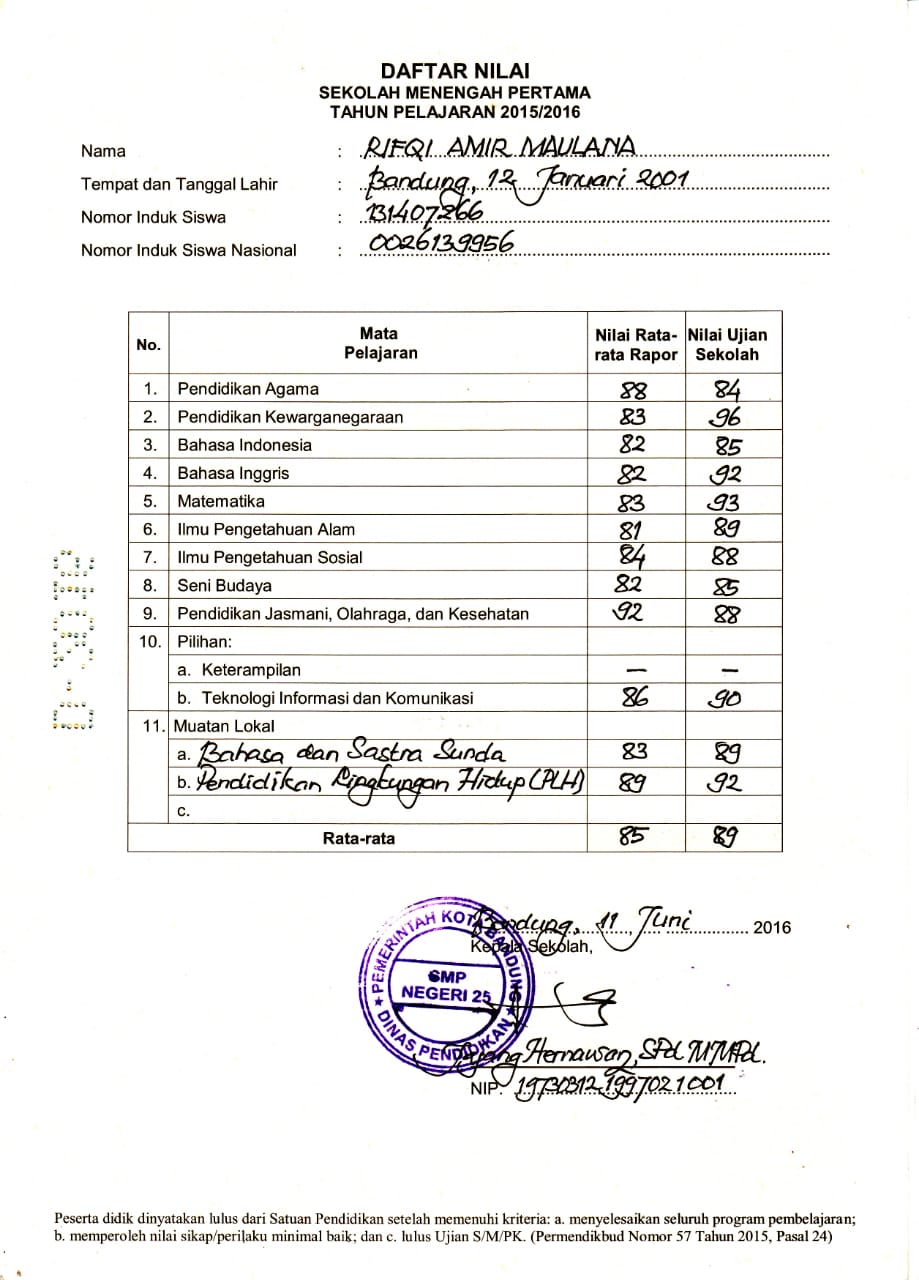 DAFTAR NILAI
SEKOLAH MENENGAH PERTAMA
TAHUN PELAJARAN 2015/2016
Nama : RIFQI AMIR MAULANA
Tempat dan Tanggal Lahir : Bandung, 12 Januari 2001
Nomor Induk Siswa : 131407266
Nomor Induk Siswa Nasional : 0026139956
No. Mata Pelajaran Nilai Rata-rata Rapor Nilai Ujian Sekolah
1. Pendidikan Agama 88 84
2. Pendidikan Kewarganegaraan 83 96
3. Bahasa Indonesia 82 85
4. Bahasa Inggris 82 92
5. Matematika 83 93
6. Ilmu Pengetahuan Alam 81 89
7. Ilmu Pengetahuan Sosial 84 88
8. Seni Budaya 82 85
9. Pendidikan Jasmani, Olahraga, dan Kesehatan 92 88
10. Pilihan:
a. Keterampilan — —
b. Teknologi Informasi dan Komunikasi 86 90
11. Muatan Lokal
a. Bahasa dan Sastra Sunda 83 89
b. Pendidikan Lingkungan Hidup (PLH) 89 92
c.
Rata-rata 85 89
Bandung, 11 Juni 2016
Kepala Sekolah,
PEMERINTAH KOTA BANDUNG
SMP
NEGERI 25
DINAS PENDIDIKAN
Hernawan, SPd
NIP. 19730312 199702 1 001
Peserta didik dinyatakan lulus dari Satuan Pendidikan setelah memenuhi kriteria: a. menyelesaikan seluruh program pembelajaran;
b. memperoleh nilai sikap/perilaku minimal baik; dan c. lulus Ujian S/M/PK. (Permendikbud Nomor 57 Tahun 2015, Pasal 24)